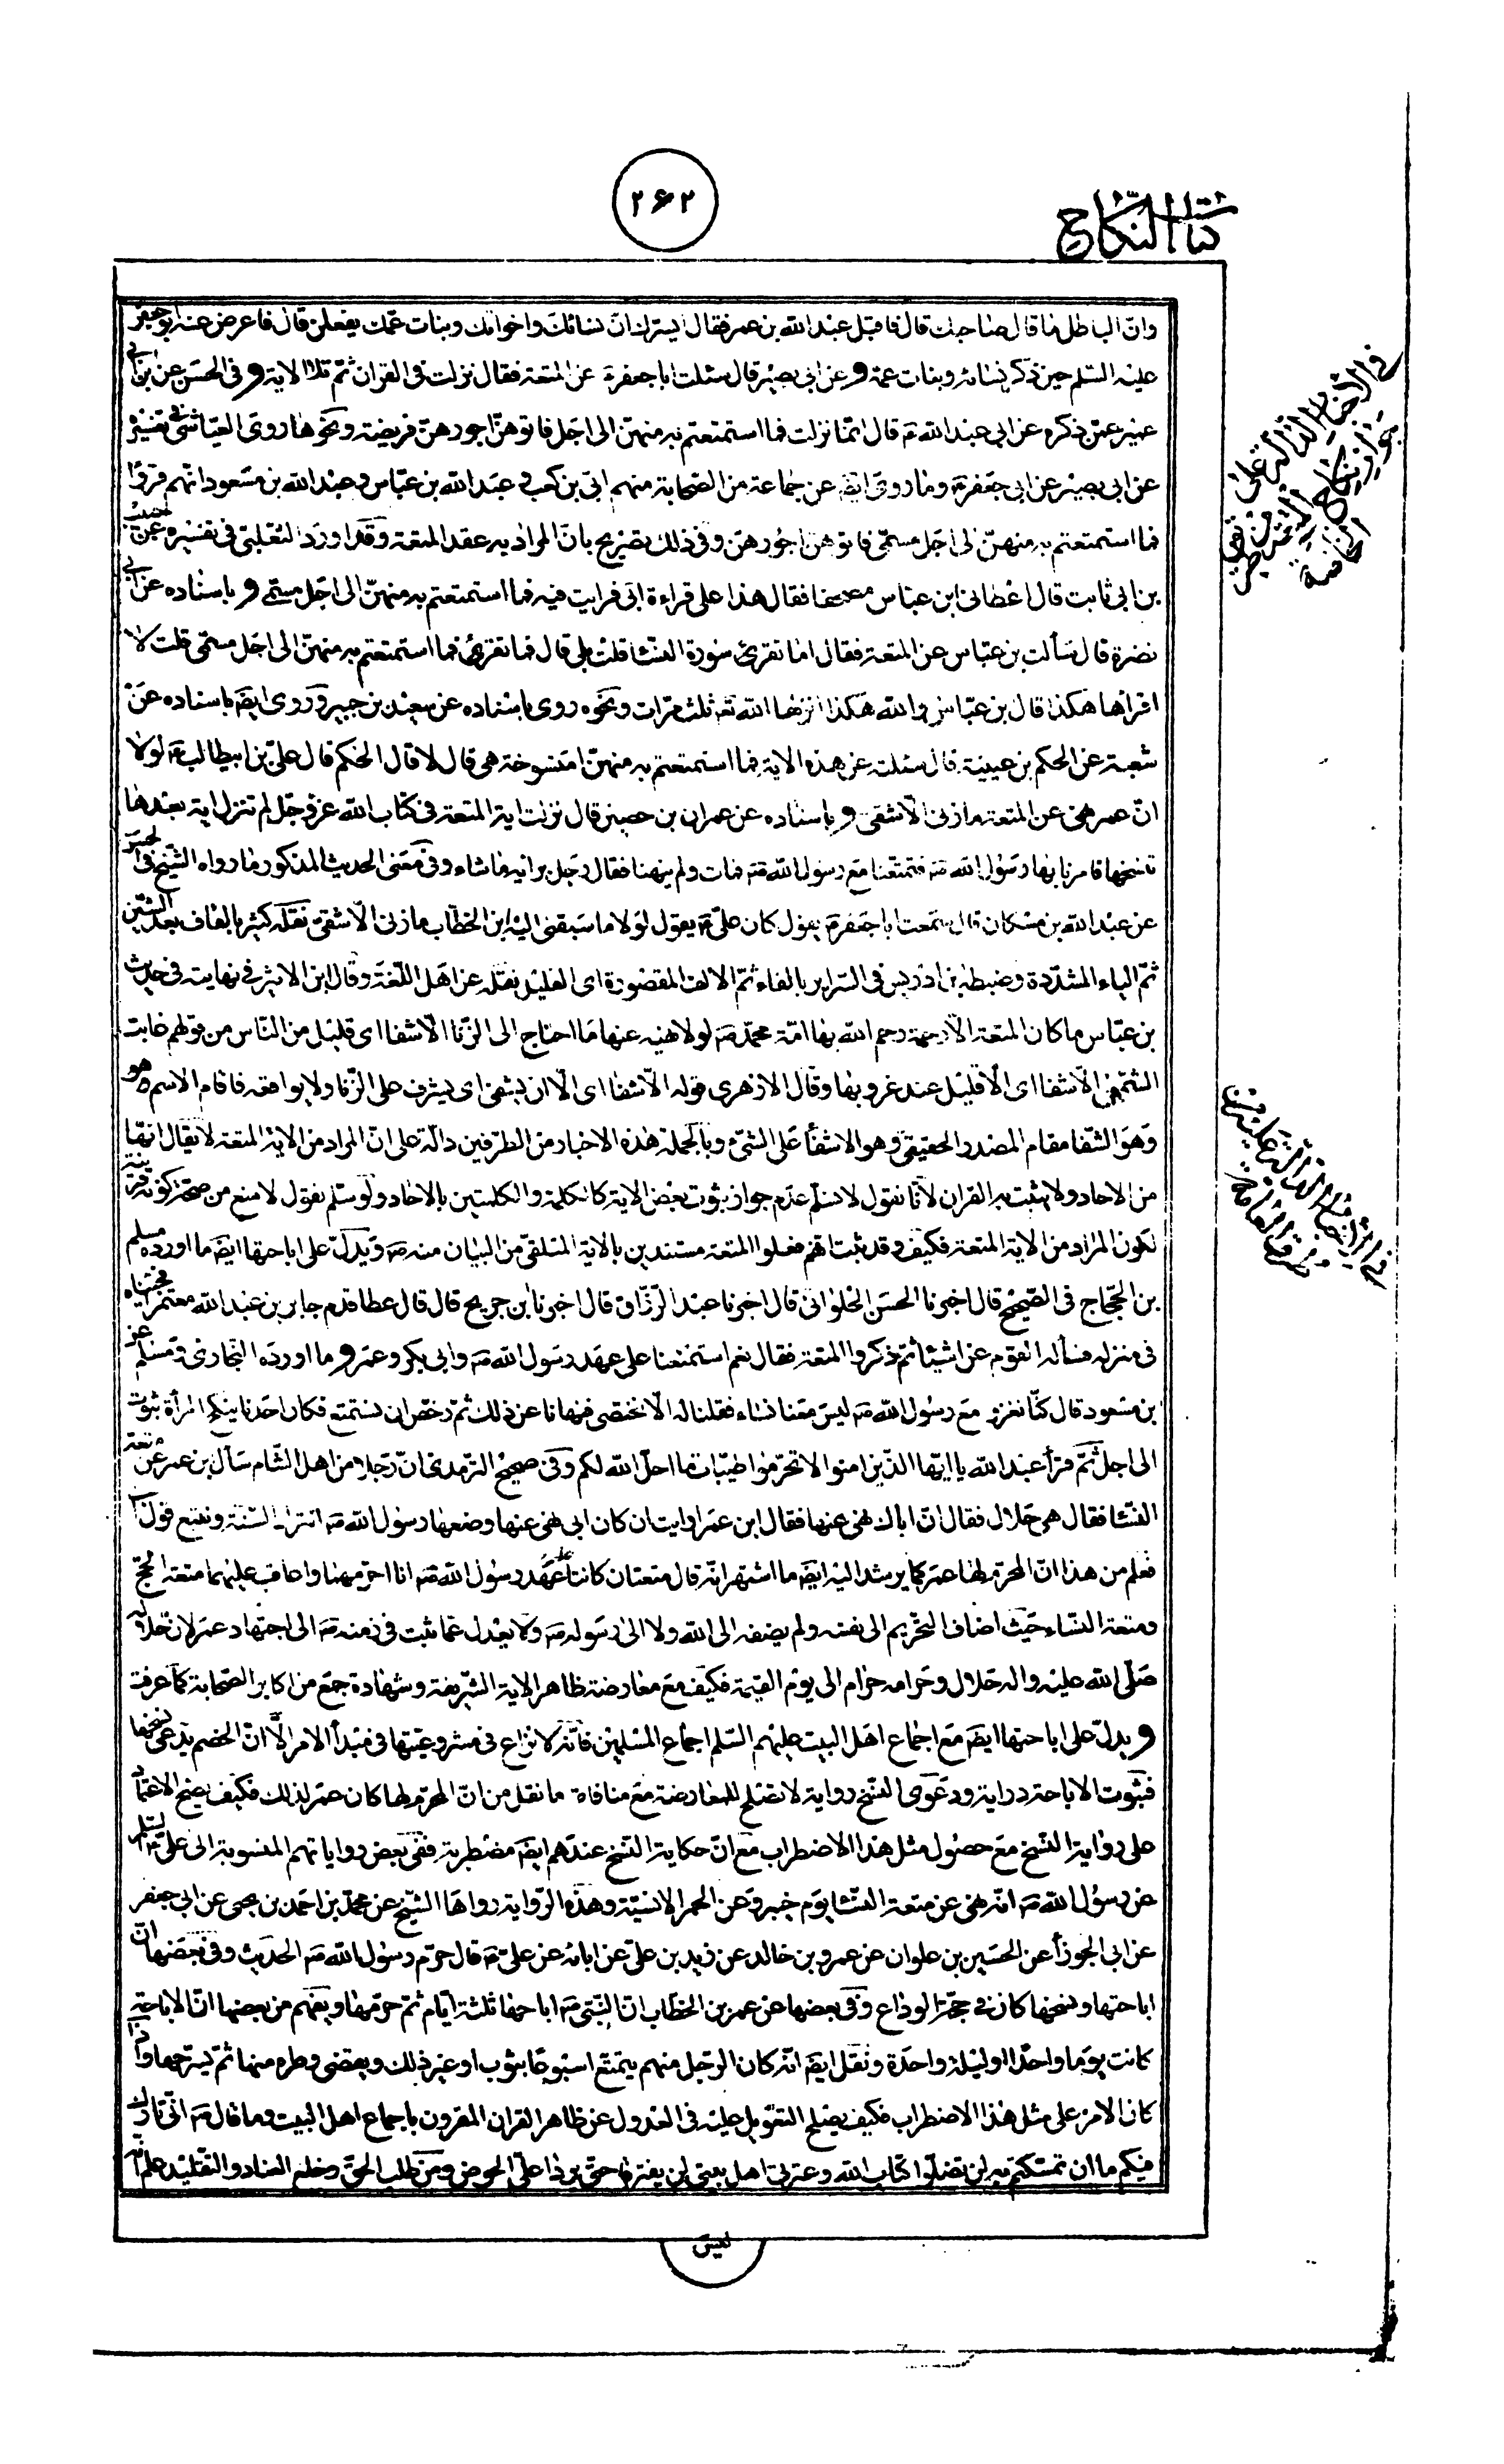 ۲۶۲
كتاب النكاح
وانّ الباطل ما قال صاحبك قال فاقبل عبد الله بن عمر فقال ايسرك انّ نسائك واخواتك وبنات عمّك يفعلن قال فاعرض عنه ابو جعفر
عليه السّلم حين ذكر نسائه وبنات عمه و عن ابى بصير قال سئلت ابا جعفر ع عن المتعة فقال نزلت فى القران ثمّ تلا الاية و فى الحسن عن ابن ابى
عمير عمّن ذكره عن ابى عبد الله ع قال انّما نزلت فما استمتعتم به منهنّ الى اجل فاتوهنّ اجورهنّ فريضة ونحوها روى العيّاشى فى تفسيره
عن ابى بصير عن ابى جعفر ع وما روى ايض عن جماعة من الصّحابة منهم ابىّ بن كعب و عبد الله بن عبّاس و عبد الله بن مسعود انّهم قرؤا
فما استمتعتم به منهنّ الى اجل مسمّى فاتوهنّ اجورهنّ وفى ذلك تصريح بانّ المراد به عقد المتعة وقد اورد الثعلبى فى تفسيره عن حبيب
بن ابى ثابت قال اعطانى ابن عبّاس مصحفا فقال هذا على قراءة ابىّ فرايت فيه فما استمتعتم به منهنّ الى اجل مسمّى و باسناده عن ابى
نضرة قال سألت بن عبّاس عن المتعة فقال اما تقرئ سورة النّسا قلت بلى قال فما تقرئ فما استمتعتم به منهنّ الى اجل مسمّى قلت لا
اقراها هكذا قال بن عبّاس والله هكذا انزلها الله تع ثلث مرّات ونحوه روى باسناده عن سعيد بن جبير وروى ايض باسناده عن
شعبة عن الحكم بن عيينة قال سئلته عن هذه الاية فما استمتعتم به منهنّ امنسوخة هى قال لا قال الحكم قال علىّ بن ابيطالب ع لولا
انّ عمر نهى عن المتعة ما زنى الّا شقى و باسناده عن عمران بن حصين قال نزلت اية المتعة فى كتاب الله عزّ وجلّ لم تنزل اية بعدها
تنسخها فامرنا بها رسول الله ص فتمتّعنا مع رسول الله ص فمات ولم ينهنا فقال رجل برايه ما شاء وفى معنى الحديث المذكور ما رواه الشّيخ فى
عن عبد الله بن مسكان قال سمعت ابا جعفر ع يقول كان علىّ ع يقول لولا ما سبقنى اليه ابن الخطّاب ما زنى الّا شقىّ نقله كثير بالقاف بعد الشّين
ثمّ الياء المشدّدة وضبطه بن ادريس فى السّراير بالفاء ثمّ الالف المقصورة اى القليل نقله عن اهل اللّغة وقال ابن الاثير فى نهايته فى حديث
بن عبّاس ما كان المتعة الّا رحمة رحم الله بها امّة محمّد ص لولا نهيه عنها ما احتاج الى الزّنا الّا شفا اى قليل من النّاس من قولهم غابت
الشّمس الّا شفا اى الّا قليل عند غروبها وقال الازهرى قوله الّا شفا اى الّا ان يشفى اى يشرف على الزّنا ولا يواقعه فاقام الاسم وهو
وهو الشّفا مقام المصدر الحقيقى وهو الاشفأ على الشّئ وبالجملة هذه الاخبار من الطّرفين دالّة على انّ المراد من الاية المتعة لا يقال انّها
من الاحاد ولا يثبت به القران لأنّا نقول لا نسلّم عدم جواز ثبوت بعض الاية كالكلمة والكلمتين بالاحاد ولو سلّم نقول لا منع من صحّة كونه قرينة
لكون المراد من الاية المتعة فكيف وقد ثبت انّهم فعلوا المتعة مستندين بالاية المتلقّى من البيان منه ص ويدلّ على اباحتها ايض ما اورده مسلم
بن الحجّاج فى الصّحيح قال اخبرنا الحسن الحلوانى قال اخبرنا عبد الرّزّاق قال اخبرنا ابن جريح قال قال عطا قدم جابر بن عبد الله معتمرا فجئناه
فى منزله فسأله القوم عن اشيئا ثمّ ذكروا المتعة فقال نعم استمتعنا على عهد رسول الله ص وابى بكر وعمر و ما اورده البخارى ومسلم عن
بن مسعود قال كنّا نغزو مع رسول الله ص ليس معنا نساء فقلنا له الّا نختصى فنهانا عن ذلك ثمّ رخّص ان نستمتع فكان احدنا ينكح المرأة بثوب
الى اجل ثمّ قرأ عبد الله يا ايّها الّذين امنوا لا تحرّموا طيّبات ما احلّ الله لكم وفى صحيح التّرمذى انّ رجلا من اهل الشّام سأل بن عمر عن متعة
النّسا فقال هى حلال فقال انّ اباك نهى عنها فقال ابن عمر ارايت ان كان ابى نهى عنها وضعها رسول الله ص انترك السّنّة ونتبع قول ابى
فعلم من هذا انّ المحرّم لها عمر كما يرشد اليه ايض ما اشتهر انّه قال متعتان كانتا على عهد رسول الله ص انا احرّمهما واعاقب عليهما متعة الحجّ
ومتعة النّساء حيث اضاف التّحريم الى نفسه ولم يضفه الى الله ولا الى رسوله ص ولا يعدل عمّا ثبت فى زمنه ص الى اجتهاد عمر لان حلاله
صلّى الله عليه واله حلال وحرامه حرام الى يوم القيمة فكيف مع معارضة ظاهر الاية الشّريفة وشهادة جمع من اكابر الصّحابة كما عرفت
و يدلّ على اباحتها ايض مع اجماع اهل البيت عليهم السّلم اجماع المسلمين فانّه لا نزاع فى مشروعيّتها فى مبدأ الامر الّا انّ الخصم يدّعى نسخها
فثبوت الاباحة دراية ودعوى النّسخ رواية لا تصلح للمعارضة مع منافاة ما نقل من انّ المحرّم لها كان عمر لذلك فكيف يصحّ الاعتماد
على رواية النّسخ مع حصول مثل هذا الاضطراب مع انّ حكاية النّسخ عندهم ايض مضطربة ففى بعض رواياتهم المنسوبة الى علىّ ع
عن رسول الله ص انّه نهى عن متعة النّسا يوم خيبر وعن الحمر الانسيّة وهذه الرّواية رواها الشّيخ عن محمّد بن احمد بن يحيى عن ابى جعفر
عن ابى الجوزأ عن الحسين بن علوان عن عمرو بن خالد عن زيد بن علىّ عن ابائه عن علىّ ع قال حرّم رسول الله ص الحديث وفى بعضها انّ
اباحتها ونسخها كان فى حجّة الوداع وفى بعضها عن عمر بن الخطّاب انّ النّبىّ ص اباحها ثلثة ايّام ثمّ حرّمها ويفهم من بعضها انّ الاباحة
كانت يوما واحدا او ليلة واحدة ونقل ايض انّه كان الرّجل منهم يتمتّع اسبوعا بثوب او غير ذلك ويقضى وطره منها ثمّ يسرّحها واذا
كان الامر على مثل هذا الاضطراب فكيف يصلح التّعويل عليه فى العدول عن ظاهر القران المقرون باجماع اهل البيت وما قال ص انّى تارك
فيكم ما ان تمسّكتم به لن تضلّوا كتاب الله وعترتى اهل بيتى لن يفترقا حتّى يردا علىّ الحوض ومن طلب الحقّ وخلع العناد والتّقليد علم انّه
ليس
فى الأخبار الدّالّة على
جواز نكاح المتعة من طرق
الخاصة